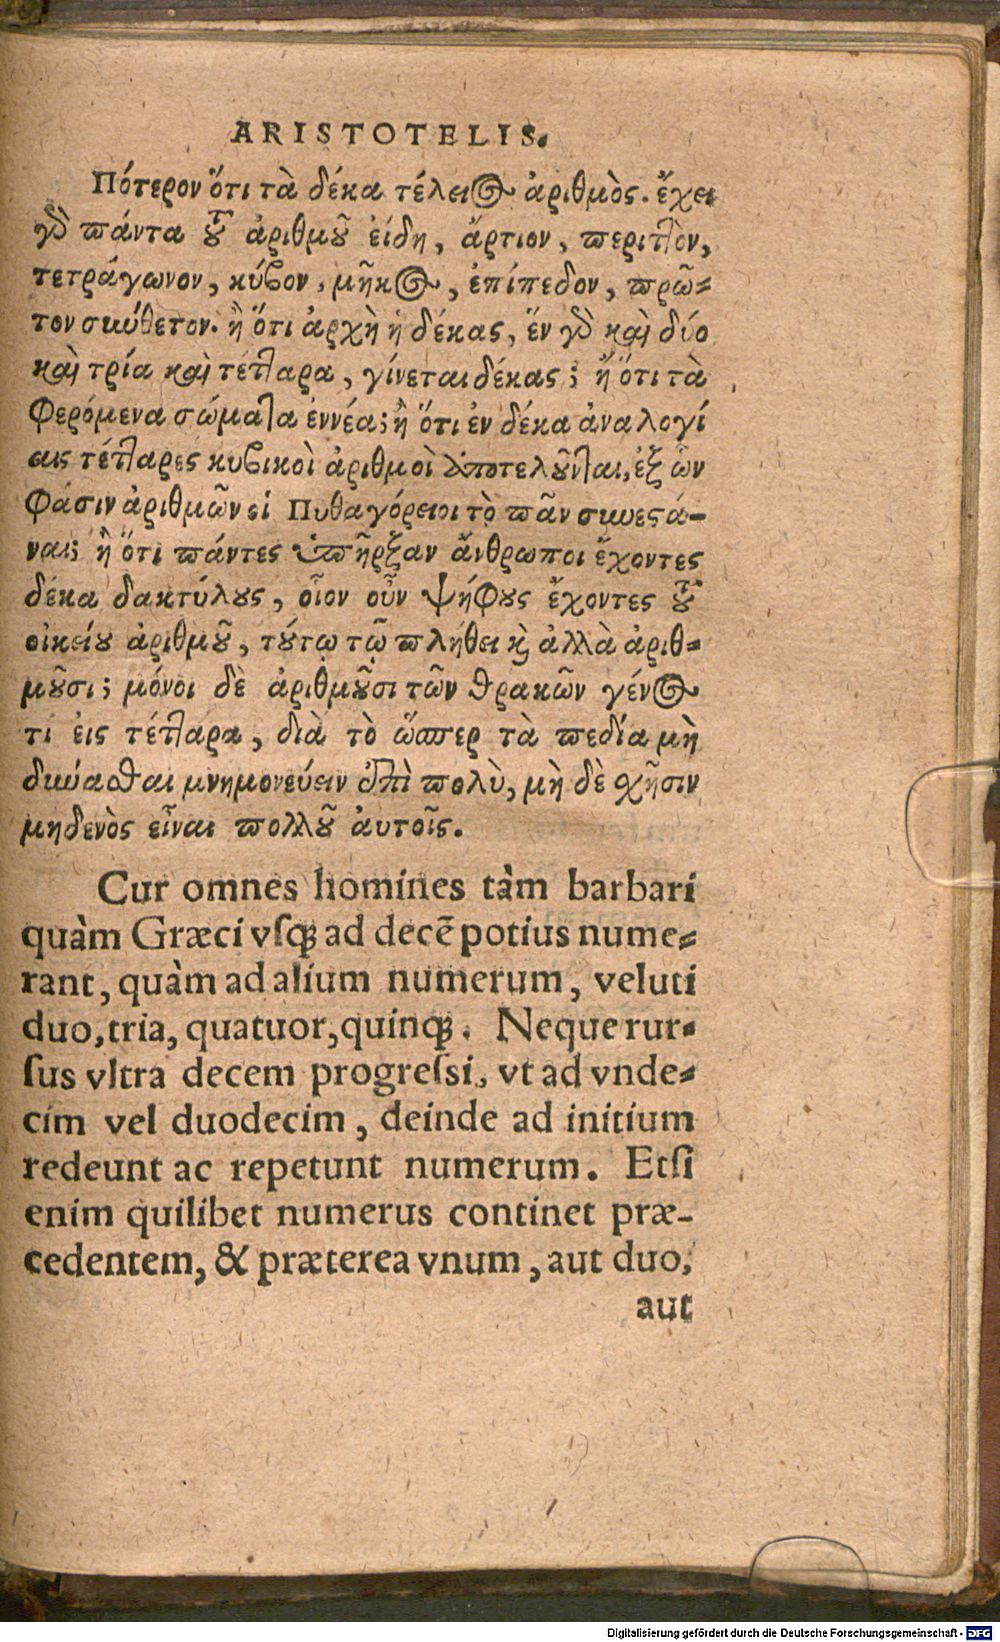 ARISTOTELIS.
Πότερον ὅτι τὰ δέκα τέλειος ἀριθμὸς. ἔχει
γὸ πάντα τοῦ ἀριθμοῦ εἴδη, ἄρτιον, περιττὸν,
τετράγωνον, κύβον, μῆκος, ἐπίπεδον, πρῶ-
τον σύνθετον. ἢ ὅτι ἀρχὴ ἡ δέκας, ἕν γὸ καὶ δύο
καὶ τρία καὶ τέτταρα, γίνεται δέκας; ἢ ὅτι τὰ
φερόμενα σώματα ἐννέα; ἢ ὅτι ἐν δέκα ἀναλογί
αις τέτταρες κυβικοὶ ἀριθμοὶ ἀποτελοῦνται, ἐξ ὧν
φάσιν ἀριθμῶν οἱ Πυθαγόρειοι τὸ πᾶν συνεστά-
ναι; ἢ ὅτι πάντες ὑπῆρξαν ἄνθρωποι ἔχοντες
δέκα δακτύλους, οἷον οὖν ψήφους ἔχοντες τοῦ
οἰκείου ἀριθμοῦ, τούτῳ τῷ πλήθει κ̀ ἀλλὰ ἀριθ-
μοῦσι; μόνοι δὲ ἀριθμοῦσι τῶν θρακῶν γένος
τι εἰς τέτταρα, διὰ τὸ ὥσπερ τὰ πεδία μὴ
δύνασθαι μνημονεύειν ἐπὶ πολὺ, μὴ δὲ χρῆσιν
μηδενὸς εἶναι πολλοῦ ἀυτοῖς.
Cur omnes homines tàm barbari
quàm Græci vsqꝫ ad decē potius nume-
rant, quàm ad alium numerum, veluti
duo, tria, quatuor, quinqꝫ. Neque rur-
ſus vltra decem progreſsi, vt ad vnde-
cim vel duodecim, deinde ad initium
redeunt ac repetunt numerum. Etſi
enim quilibet numerus continet præ-
cedentem, & præterea vnum, aut duo,
aut
Digitalisierung gefördert durch die Deutsche Forschungsgemeinschaft - DFG